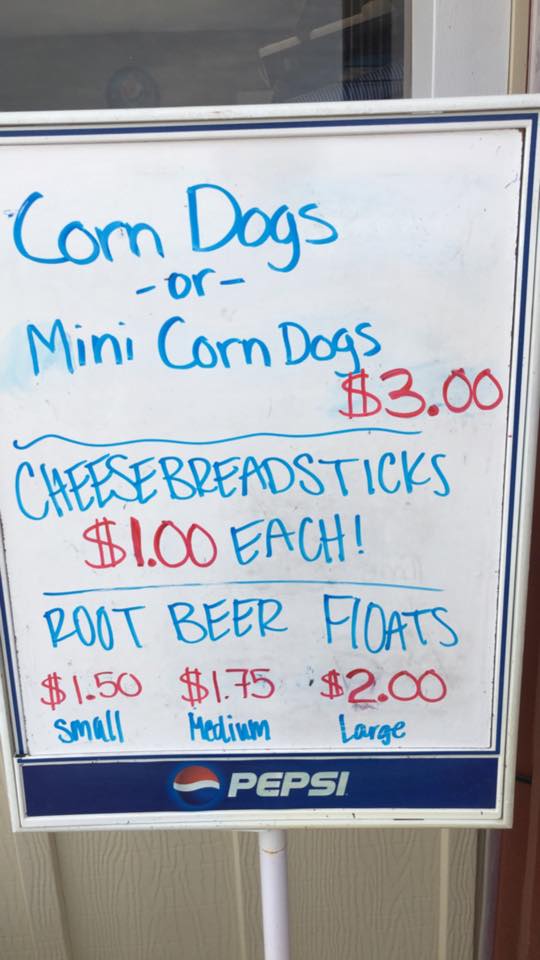 Corn Dogs
-or-
Mini Corn Dogs
$3.00
CHEESE BREADSTICKS
$1.00 EACH!
ROOT BEER FlOATS
$1.50 $1.75 $2.00
Small Medium Large
PEPSI